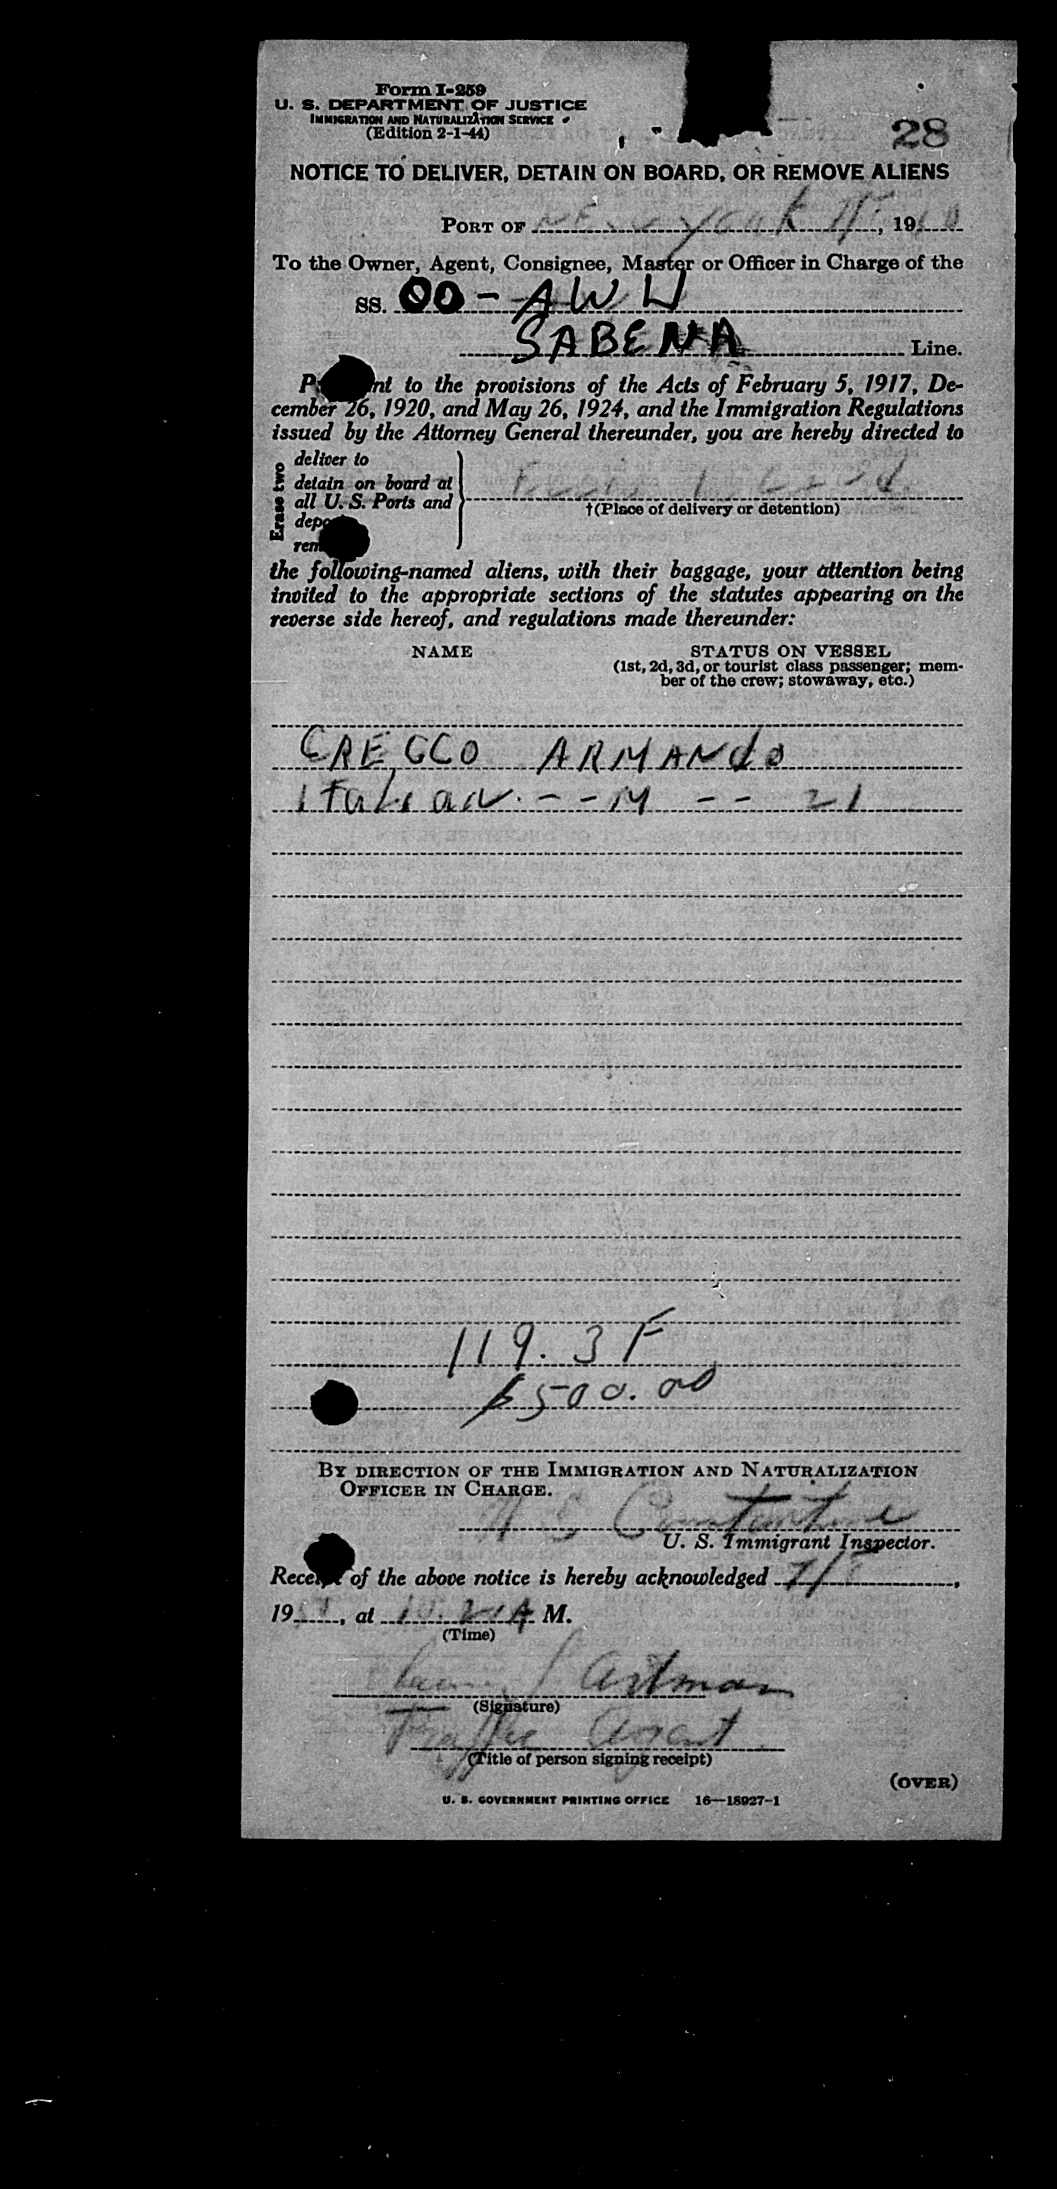 Form I-259
U. S. DEPARTMENT OF JUSTICE
IMMIGRATION AND NATURALIZATION SERVICE
(Edition 2-1-44)
28
NOTICE TO DELIVER, DETAIN ON BOARD, OR REMOVE ALIENS
PORT OF New York, 19
To the Owner, Agent, Consignee, Master or Officer in Charge of the
SS. OO-AWW
SABENA Line.
to the provisions of the Acts of February 5, 1917, De-
cember 26, 1920, and May 26, 1924, and the Immigration Regulations
issued by the Attorney General thereunder, you are hereby directed to
Erase two
deliver to
detain on board at
all U. S. Ports and
†(Place of delivery or detention)
the following-named aliens, with their baggage, your attention being
invited to the appropriate sections of the statutes appearing on the
reverse side hereof, and regulations made thereunder:
NAME
STATUS ON VESSEL
(1st, 2d, 3d, or tourist class passenger; mem-
ber of the crew; stowaway, etc.)
ARMANdO
Italian. - - M - - 21
119. 3 F
$500.00
BY DIRECTION OF THE IMMIGRATION AND NATURALIZATION
OFFICER IN CHARGE.
U. S. Immigrant Inspector.
of the above notice is hereby acknowledged
19, at A M.
(Time)
Artman
(Signature)
Traffic Agent
(Title of person signing receipt)
(OVER)
U. S. GOVERNMENT PRINTING OFFICE 16—18927-1